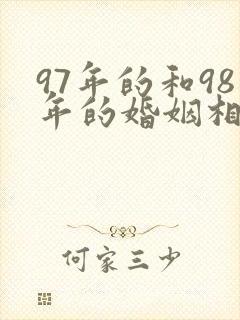 97年的和98
年的婚姻相
何家三少